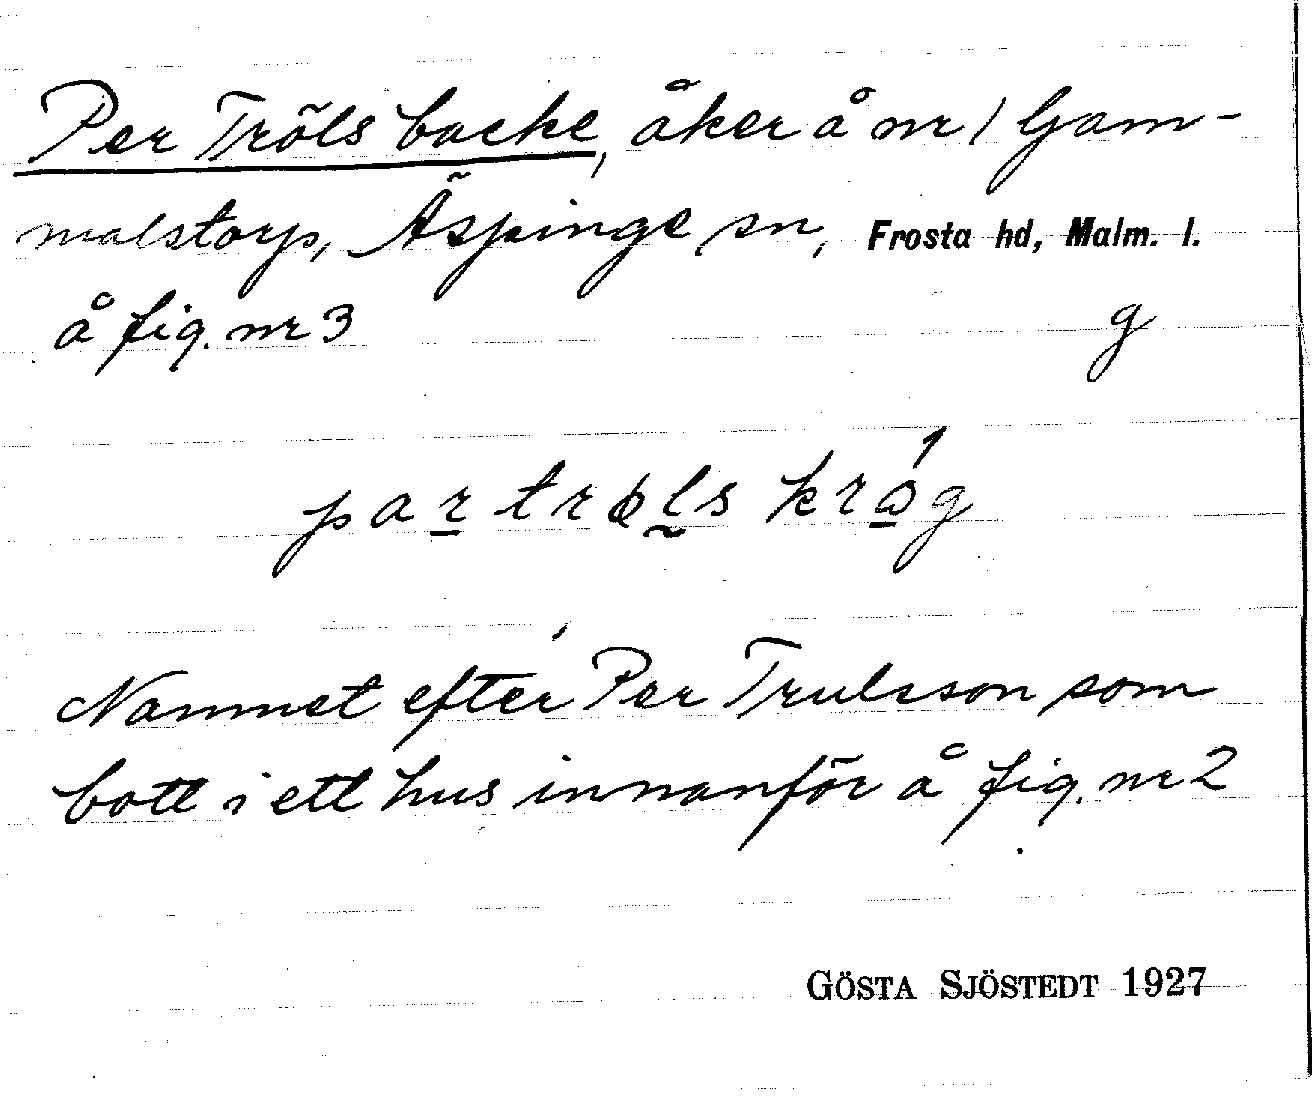 Per Tröls backe, åker å nr 1 Gam-
malstorp, Äspinge sn, Frosta hd, Malm. l.
å fig. nr 3 g
par trøls króg
Namnet efter Per Trulsson som
bott i ett hus innanför å fig. nr 2
GÖSTA SJÖSTEDT 1927